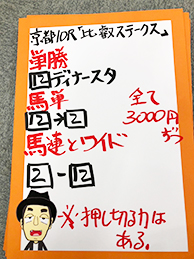 京都10R「比叡ステークス」
単勝
12ディナースタ
馬単 全て
12→2 3000円
馬連とワイド ずつ
2-12
※押し切る力は
ある。